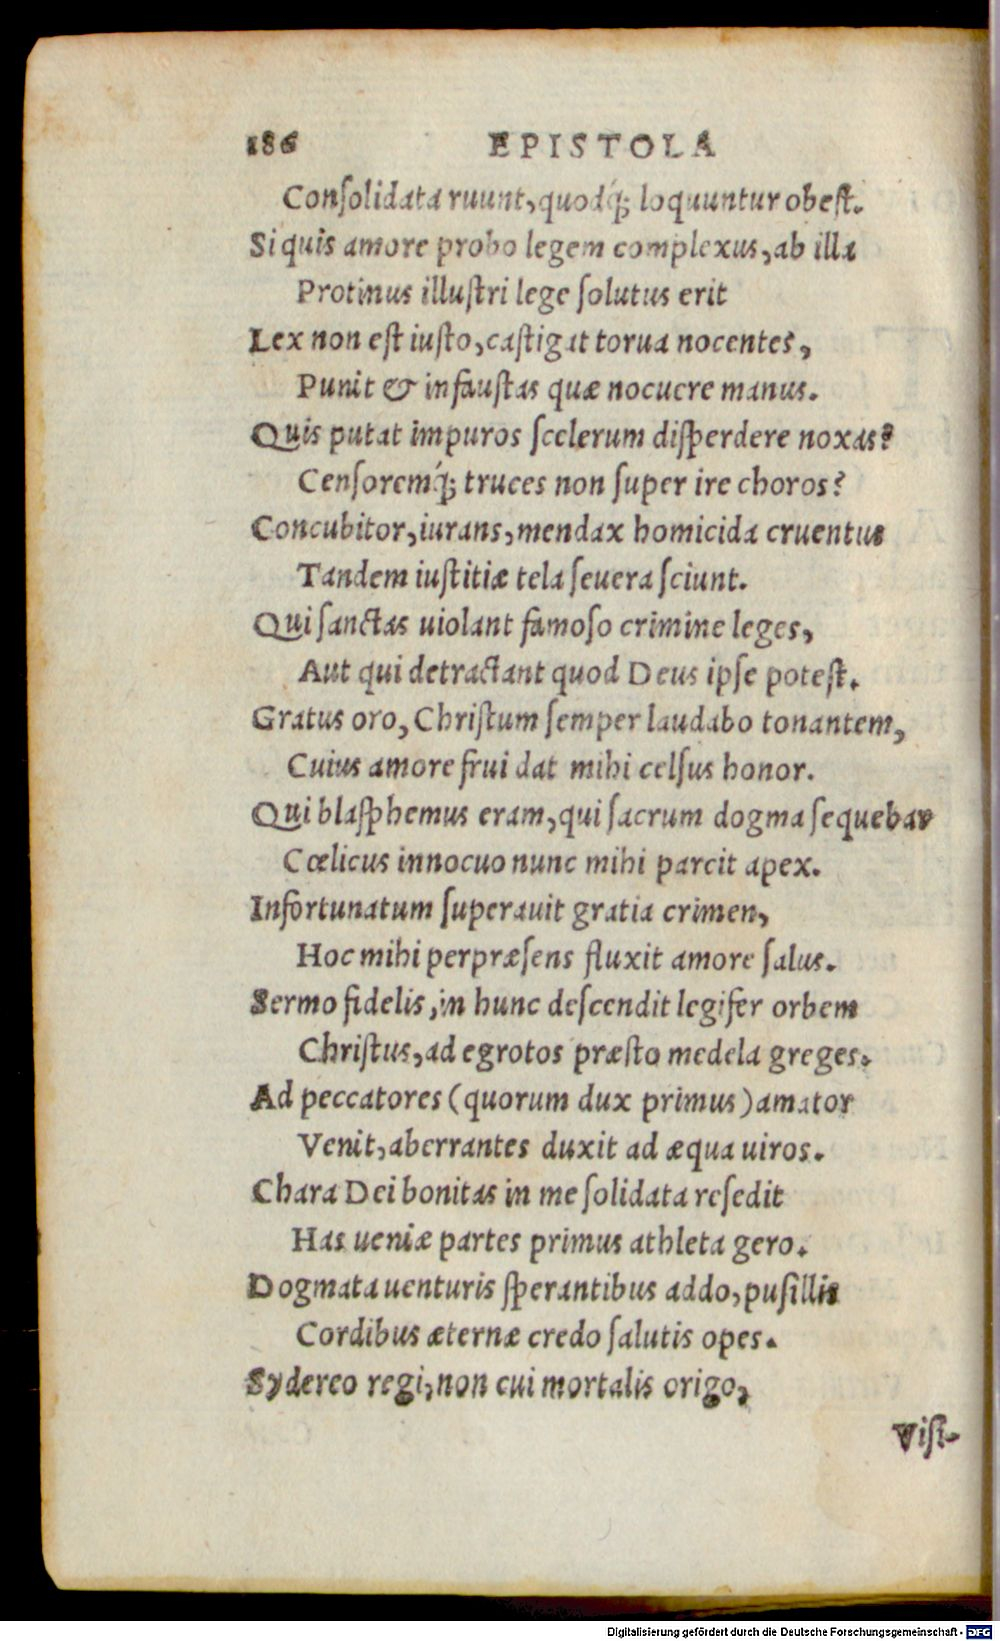 186 EPISTOLA
Conſolidata ruunt, quodq́; loquuntur obeſt.
Si quis amore probo legem complexus, ab illa
Protinus illuſtri lege ſolutus erit
Lex non eſt iuſto, caſtigat torua nocentes,
Punit & infauſtas quæ nocuere manus.
Quis putat impuros ſcelerum diſperdere noxas?
Cenſoremq́; truces non ſuper ire choros?
Concubitor, iurans, mendax homicida cruentus
Tandem iuſtitiæ tela ſeuera ſciunt.
Qui ſanctas uiolant famoſo crimine leges,
Aut qui detractant quod Deus ipſe poteſt.
Gratus oro, Chriſtum ſemper laudabo tonantem,
Cuius amore frui dat mihi celſus honor.
Qui blaſphemus eram, qui ſacrum dogma ſequebar
Cœlicus innocuo nunc mihi parcit apex.
Infortunatum ſuperauit gratia crimen,
Hoc mihi perpræſens fluxit amore ſalus.
Sermo fidelis, in hunc deſcendit legifer orbem
Chriſtus, ad egrotos præſto medela greges.
Ad peccatores (quorum dux primus) amator
Venit, aberrantes duxit ad æqua uiros.
Chara Dei bonitas in me ſolidata reſedit
Has ueniæ partes primus athleta gero.
Dogmata uenturis ſperantibus addo, puſillis
Cordibus æternæ credo ſalutis opes.
Sydereo regi, non cui mortalis origo,
Viſi-
Digitalisierung gefördert durch die Deutsche Forschungsgemeinschaft - DFG